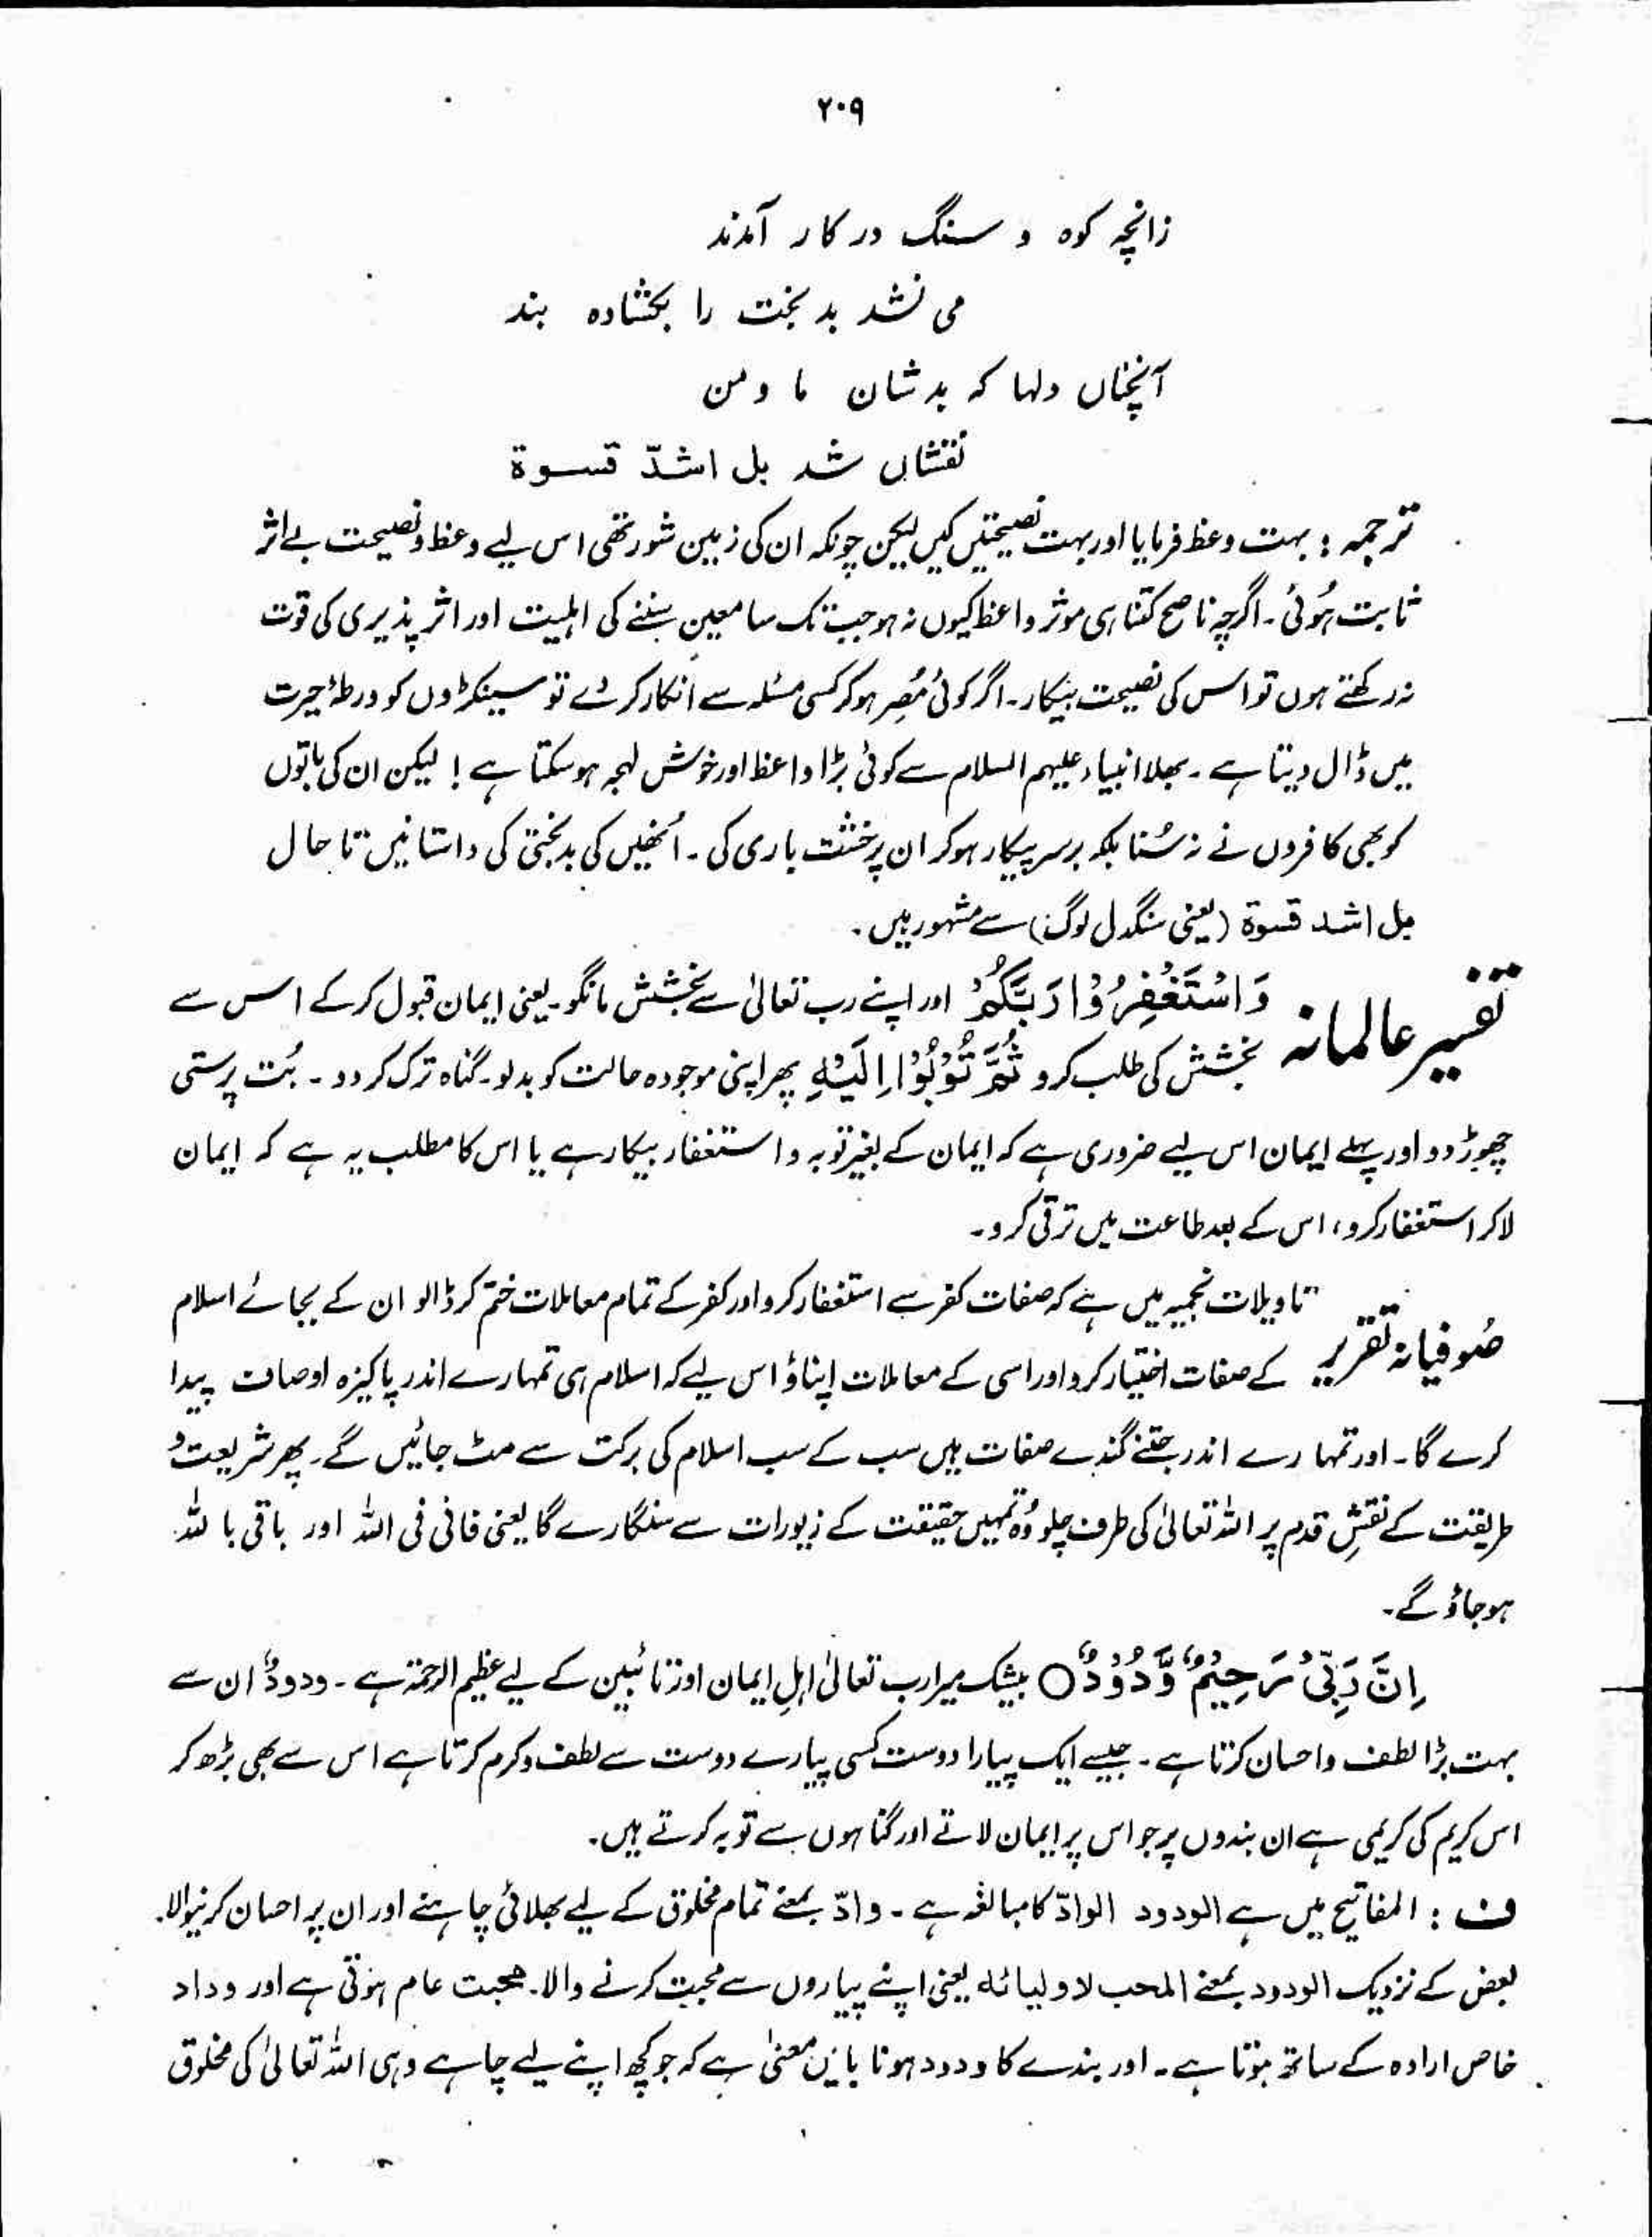 ۲۰۹
زانچہ کوہ و سنگ در کار آمدند
می نشد بدبخت را بکشادہ بند
آنچناں دلہا کہ بدشان ما و من
نقشاں شد بل اشدّ قسوۃ
ترجمہ : بہت وعظ فرمایا اور بہت نصیحتیں کیں لیکن چونکہ ان کی زمین شور تھی اس لیے وعظ و نصیحت بے اثر
ثابت ہُوئی ۔ اگرچہ ناصح کتنا ہی موثر واعظ کیوں نہ ہو جب تک سامعین سننے کی اہلیت اور اثر پذیری کی قوت
نہ رکھتے ہوں تو اس کی نصیحت بیکار ۔ اگر کوئی مُصِر ہوکر کسی مسئلہ سے انکار کر دے تو سینکڑوں کو ورطۂ حیرت
میں ڈال دیتا ہے ۔ بھلا انبیاء علیہم السلام سے کوئی بڑا واعظ اور خوش لہجہ ہوسکتا ہے ! لیکن ان کی باتوں
کو بھی کافروں نے نہ سُنا بلکہ برسر پیکار ہوکر ان پر خشت باری کی ۔ اُنھیں کی بدبختی کی داستانیں تا حال
بل اشد قسوۃ (یعنی سنگدل لوگ) سے مشہور ہیں ۔
تفسیر عالمانہ وَاسْتَغْفِرُوْا رَبَّکُمْ اور اپنے رب تعالیٰ سے بخشش مانگو ۔ یعنی ایمان قبول کرکے اس سے
بخشش کی طلب کرو ثُمَّ تُوْبُوْا اِلَیْہِ پھر اپنی موجودہ حالت کو بدلو ۔ گناہ ترک کردو ۔ بُت پرستی
چھوڑ دو اور پہلے ایمان اس لیے ضروری ہے کہ ایمان کے بغیر توبہ و استغفار بیکار ہے یا اس کا مطلب یہ ہے کہ ایمان
لا کر استغفار کرو ، اس کے بعد طاعت میں ترقی کرو ۔
صُوفیانہ تقریر تاویلات نجمیہ میں ہے کہ صفات کفر سے استغفار کرو اور کفر کے تمام معاملات ختم کر ڈالو ان کے بجائے اسلام
کے صفات اختیار کرو اور اسی کے معاملات اپناؤ اس لیے کہ اسلام ہی تمہارے اندر پاکیزہ اوصاف پیدا
کرے گا ۔ اور تمہارے اندر جتنے گندے صفات ہیں سب کے سب اسلام کی برکت سے مٹ جائیں گے ۔ پھر شریعت و
طریقت کے نقشِ قدم پر اللہ تعالیٰ کی طرف چلو وُہ تمہیں حقیقت کے زیورات سے سنگارے گا یعنی فانی فی اللہ اور باقی باللہ
ہوجاؤ گے ۔
اِنَّ رَبِّیْ رَحِیْمٌ وَّدُوْدٌ ○ بیشک میرا رب تعالیٰ اہلِ ایمان اور تائبین کے لیے عظیم الرحمۃ ہے ۔ ودودٌ ان سے
بہت بڑا لطف و احسان کرتا ہے ۔ جیسے ایک پیارا دوست کسی پیارے دوست سے لطف و کرم کرتا ہے اس سے بھی بڑھ کر
اس کریم کی کریمی ہے ان بندوں پر جو اس پر ایمان لاتے اور گناہوں سے توبہ کرتے ہیں ۔
ف : المفاتیح میں ہے الودود الوادّ کا مبالغہ ہے ۔ وادّ بمعنے تمام مخلوق کے لیے بھلائی چاہنے اور ان پر احسان کرنیوالا ۔
بعض کے نزدیک الودود بمعنے المحب لاولیائہ یعنی اپنے پیاروں سے محبت کرنے والا ۔ محبت عام ہوتی ہے اور وداد
خاص ارادہ کے ساتھ ہوتا ہے ۔ اور بندے کا ودود ہونا بایں معنیٰ ہے کہ جو کچھ اپنے لیے چاہے وہی اللہ تعالیٰ کی مخلوق